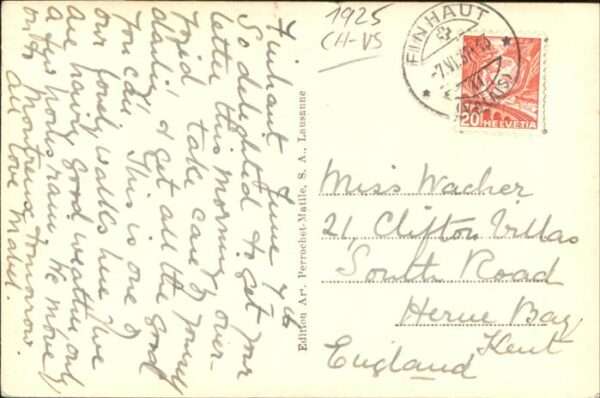 Finhaut June 7th
So delighted to get your
letter this morning over-
joyed take care of yourself
darlin' & get all the good
you can. This is one of
our lovely walks here. We
are having good weather only
a few hours rain. We move
on to Montreux tomorrow.
All love Mabel.
1925
CH-VS
FINHAUT
-7.VI.
(VALAIS)
20 HELVETIA
Edition Art. Perrochet-Matile, S. A., Lausanne
Miss Wacher
21, Clifton Villas
South Road
Herne Bay
Kent
England